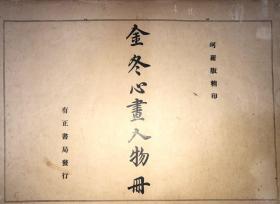 珂羅版精印
金冬心畫人物冊
有正書局發行